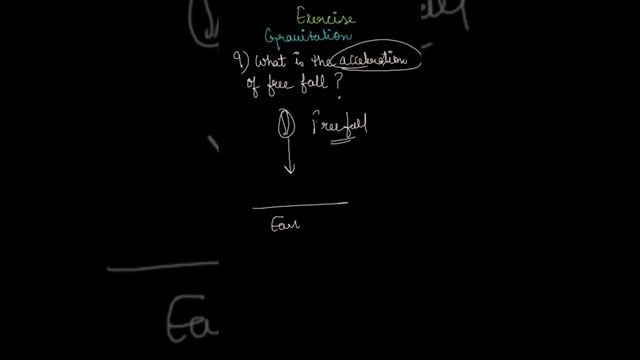 Exercise
Gravitation
9) What is the acceleration
of free fall ?
Freefall
Ear